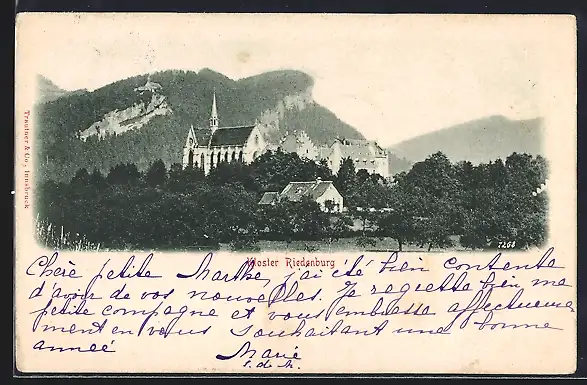 Trautner & Co., Innsbruck
7268
Kloster Riedenburg
Chère petite Marthe, j'ai été bien contente
d'avoir de vos nouvelles. Je regrette bien ma
petite compagne et vous embrasse affectueuse
ment en vous souhaitant une bonne
année
Marie